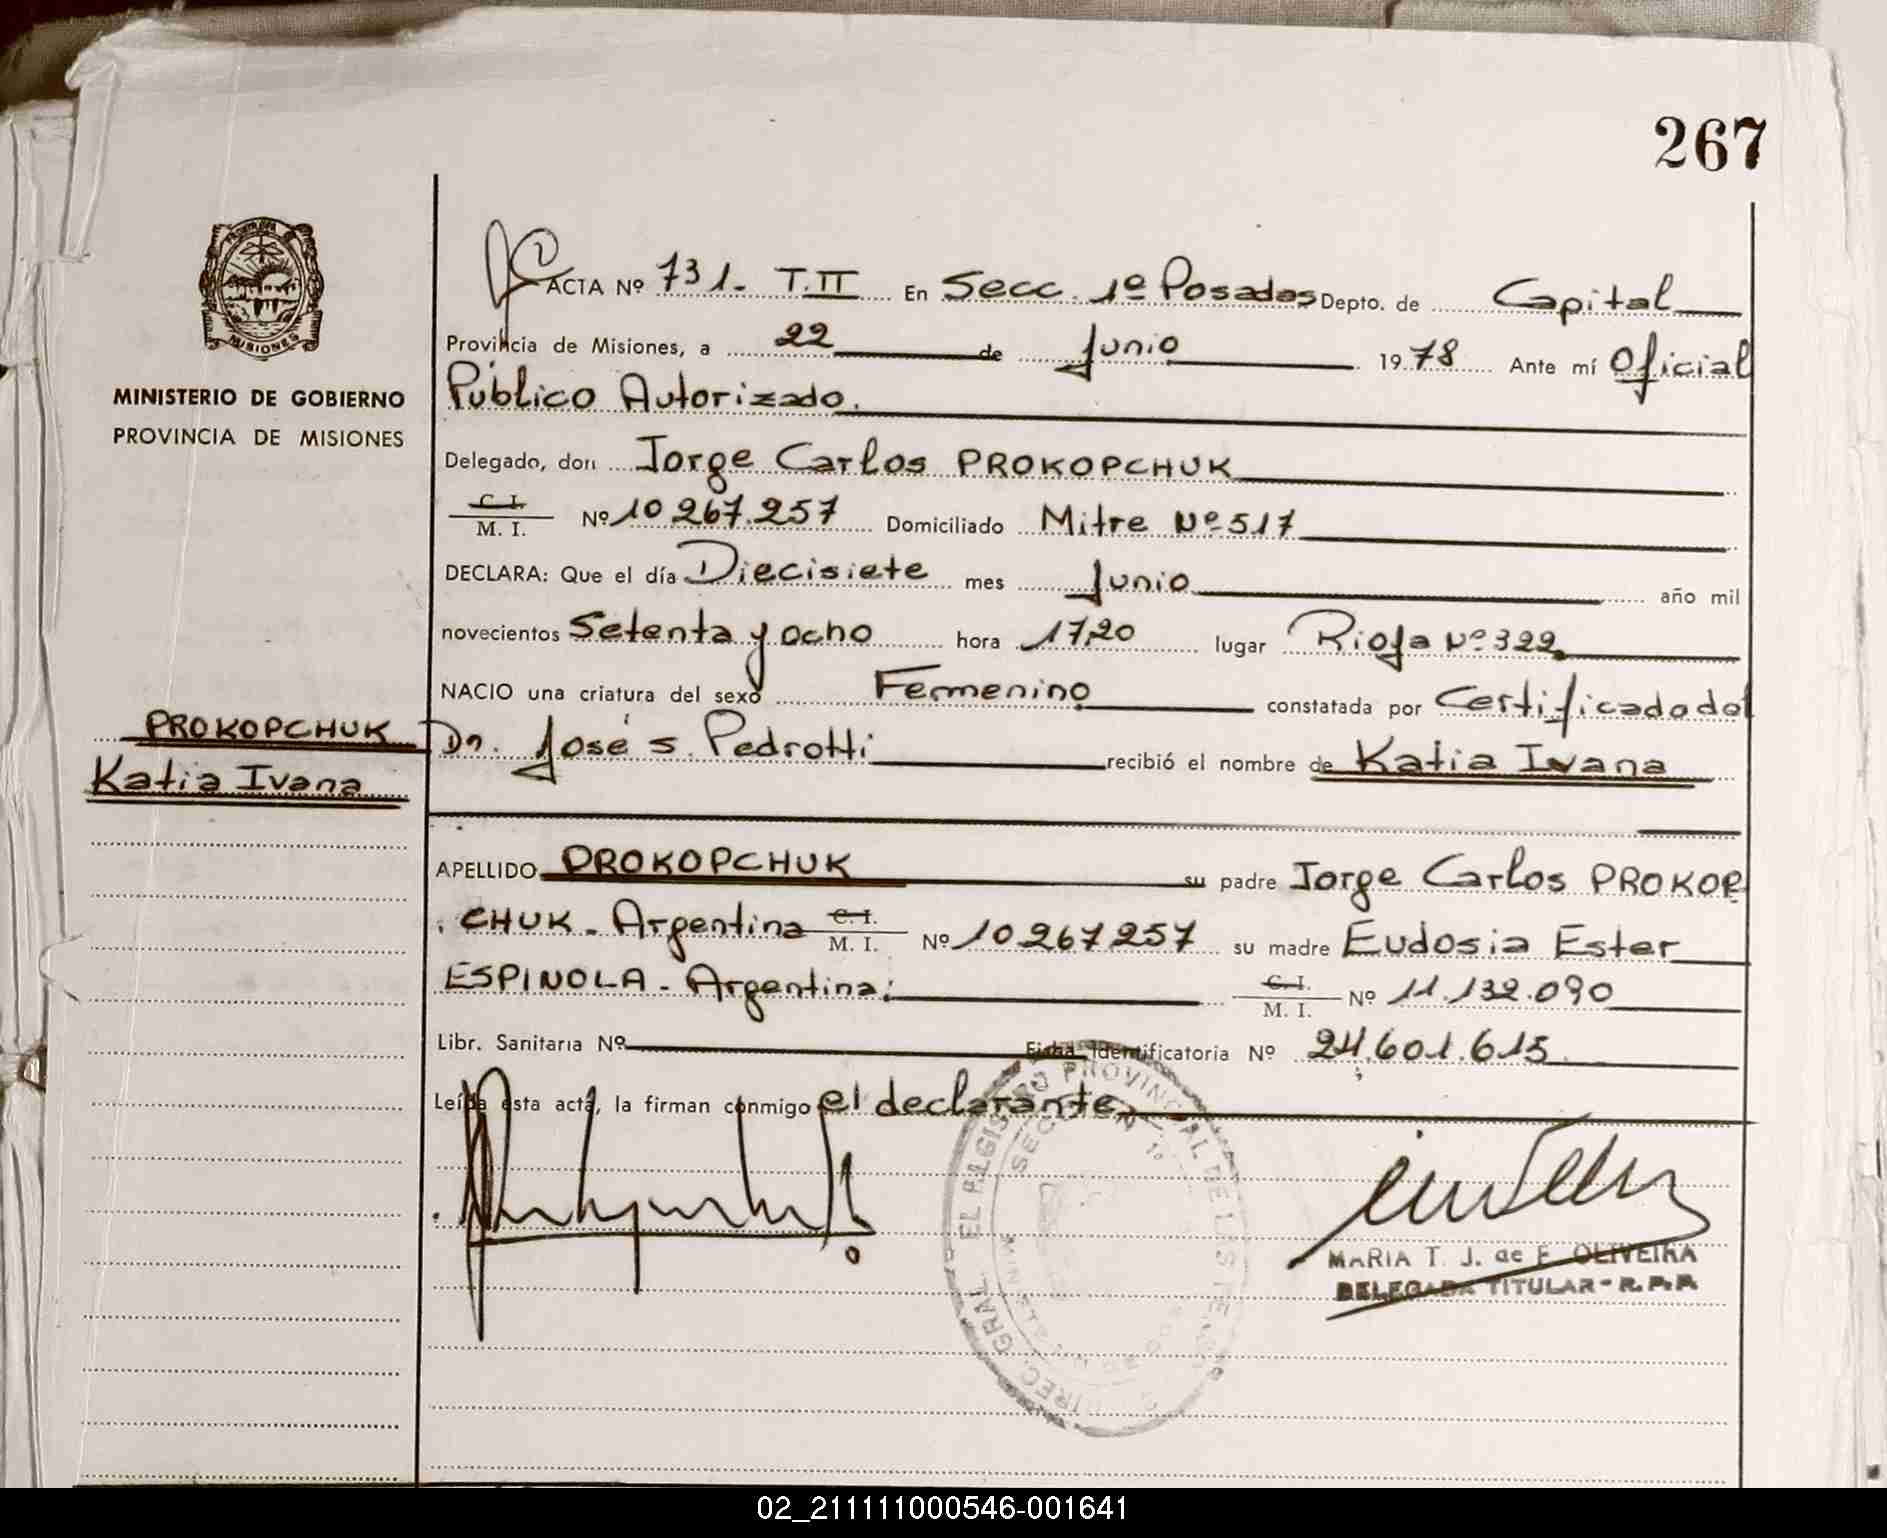 267
ACTA Nº 731. T.II En Secc. 1º Posadas Depto. de Capital
Provincia de Misiones, a 22 de Junio 1978 Ante mí Oficial
MINISTERIO DE GOBIERNO
PROVINCIA DE MISIONES
Público Autorizado.
Delegado, don Jorge Carlos PROKOPCHUK
C. I.
M. I. Nº 10.267.257 Domiciliado Mitre Nº 517
DECLARA: Que el día Diecisiete mes Junio año mil
novecientos Setenta y ocho hora 17,20 lugar Rioja Nº 322
NACIO una criatura del sexo Femenino constatada por Certificado del
PROKOPCHUK
Katia Ivana
Dr. José S. Pedrotti recibió el nombre de Katia Ivana
APELLIDO PROKOPCHUK su padre Jorge Carlos PROKOP
CHUK - Argentina C. I. M. I. Nº 10267257 su madre Eudosia Ester
ESPINOLA - Argentina. C. I. M. I. Nº 11.132.090
Libr. Sanitaria Nº Ficha Identificatoria Nº 24.601.615
Leída esta acta, la firman conmigo el declarante
DIREC. GRAL. DEL REGISTRO PROVINCIAL DE LAS PERSONAS
SECCION 1º
MISIONES
MARIA T. J. de F. OLIVEIRA
DELEGADA TITULAR - R.P.P.
02_211111000546-001641